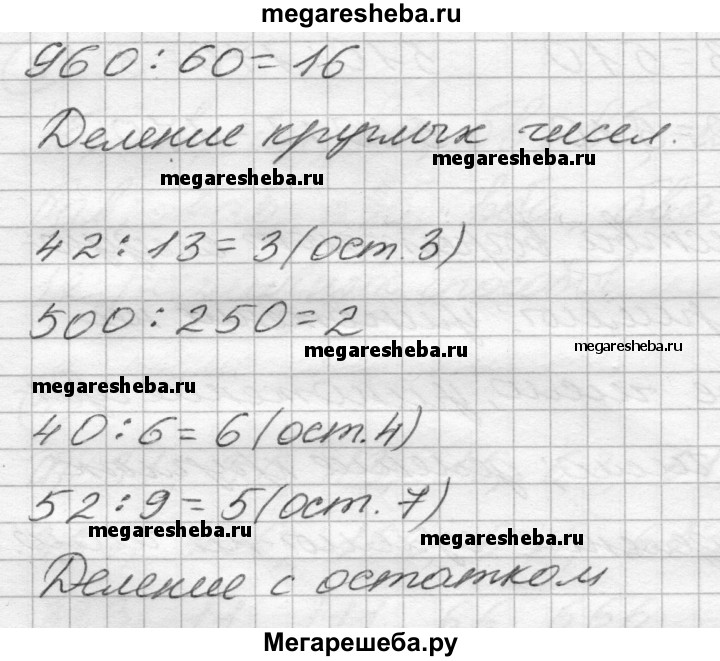 megaresheba.ru
960:60=16
Деление круглых чисел.
megaresheba.ru
megaresheba.ru
42:13=3(ост.3)
500:250=2
megaresheba.ru
megaresheba.ru
megaresheba.ru
40:6=6(ост.4)
52:9=5(ост.7)
megaresheba.ru
megaresheba.ru
Деление с остатком
Мегарешеба.ру